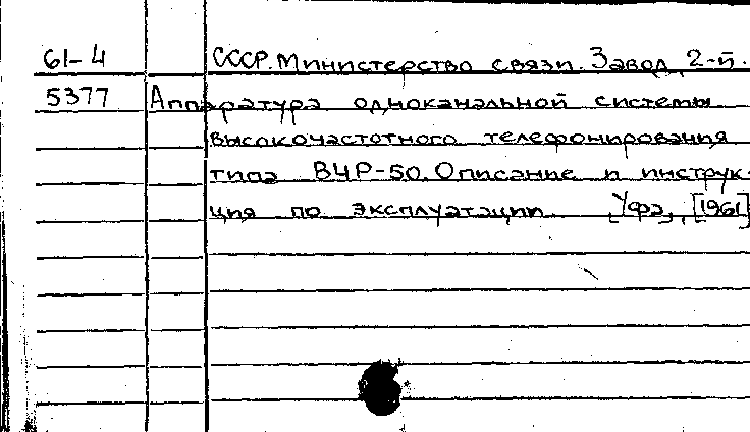 61-4 СССР. Министерство связи. Завод, 2-й.
5377 Аппаратура одноканальной системы
высокочастотного телефонирования
типа ВЧР-50. Описание и инструк-
ция по эксплуатации. Уфа, [1961]